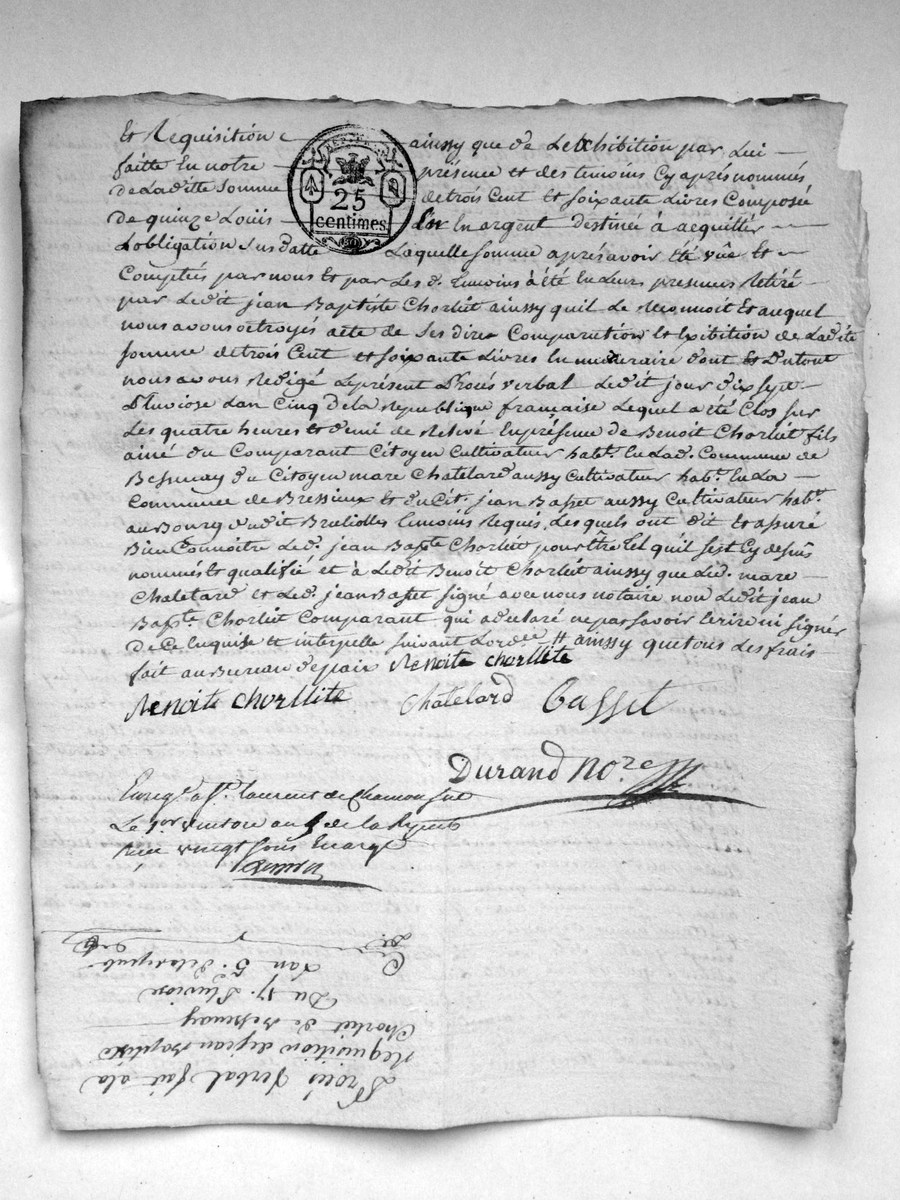 Et Requisition ainssy que de Lexhibition par Lui
faitte En notre présence et des temoins Cy après nommés
De Laditte Somme de trois Cent et soixante Livres Composée
De quinze Loüis En argent Destinée à acquitter
Lobligation Susdatte Laquelle somme aprésavoir été vûe Et
Comptéés par nous Et par Les d. temoins à été En Leurs presences Retiré
par Ledit jean Baptiste Chorliét ainssy quil Le Reconnoit Et auquel
nous avons octroyés acte de Ses dires Comparution Et Exibition de Ladite
somme de trois Cent et soixante Livres En numeraire dont Et Dutout
nous avons Redigé Leprésent Procés verbal Ledit jour dix sept
Pluviose Lan Cinq de La Republique française Lequel a été Clos sur
Les quatre heures Et demi de Relevé En présence de Benoit Chorliét fils
ainé du Comparant Citoyen Cultivateur habt. En Lad. Commune de
Bessenay du Citoyen marc Chatelard aussy Cultivateur habt. En La
Commune de Bressieux et du Cit. jean Basset aussy Cultivateur habt.
au Bourg dudit Bruliolles temoins Requis Les quels ont dit Et assuré
Bien Connoitre Led. jean Bapte Chorliét pour Etre tel quil sest Cy dessus
nommés Et qualifié et à Ledit Benoit Chorliét ainssy que Led. marc
Chatelard et Led. jean Basset signé avec nous notaire non Ledit jean
Bapte. Chorliét Comparant qui adeclaré ne pas savoir Ecrire ni signer
de Ce Enquise Et interpelle suivant Lordce # ainssy que tous Les frais
fait au Bureau de paix Renoite chorllite
Renoite chorllite Chatelard Basset
Durand Nore
Enregt. a St. Laurent de Chamousset
Le 1er ventose an 5 de la Repub
Reçu vingt sous En arge
Procés Verbal fait ala
Requisition de jean Baptiste
Chorliét de Bessenay
Du 17. Pluviose
Lan 5.e Delarepub